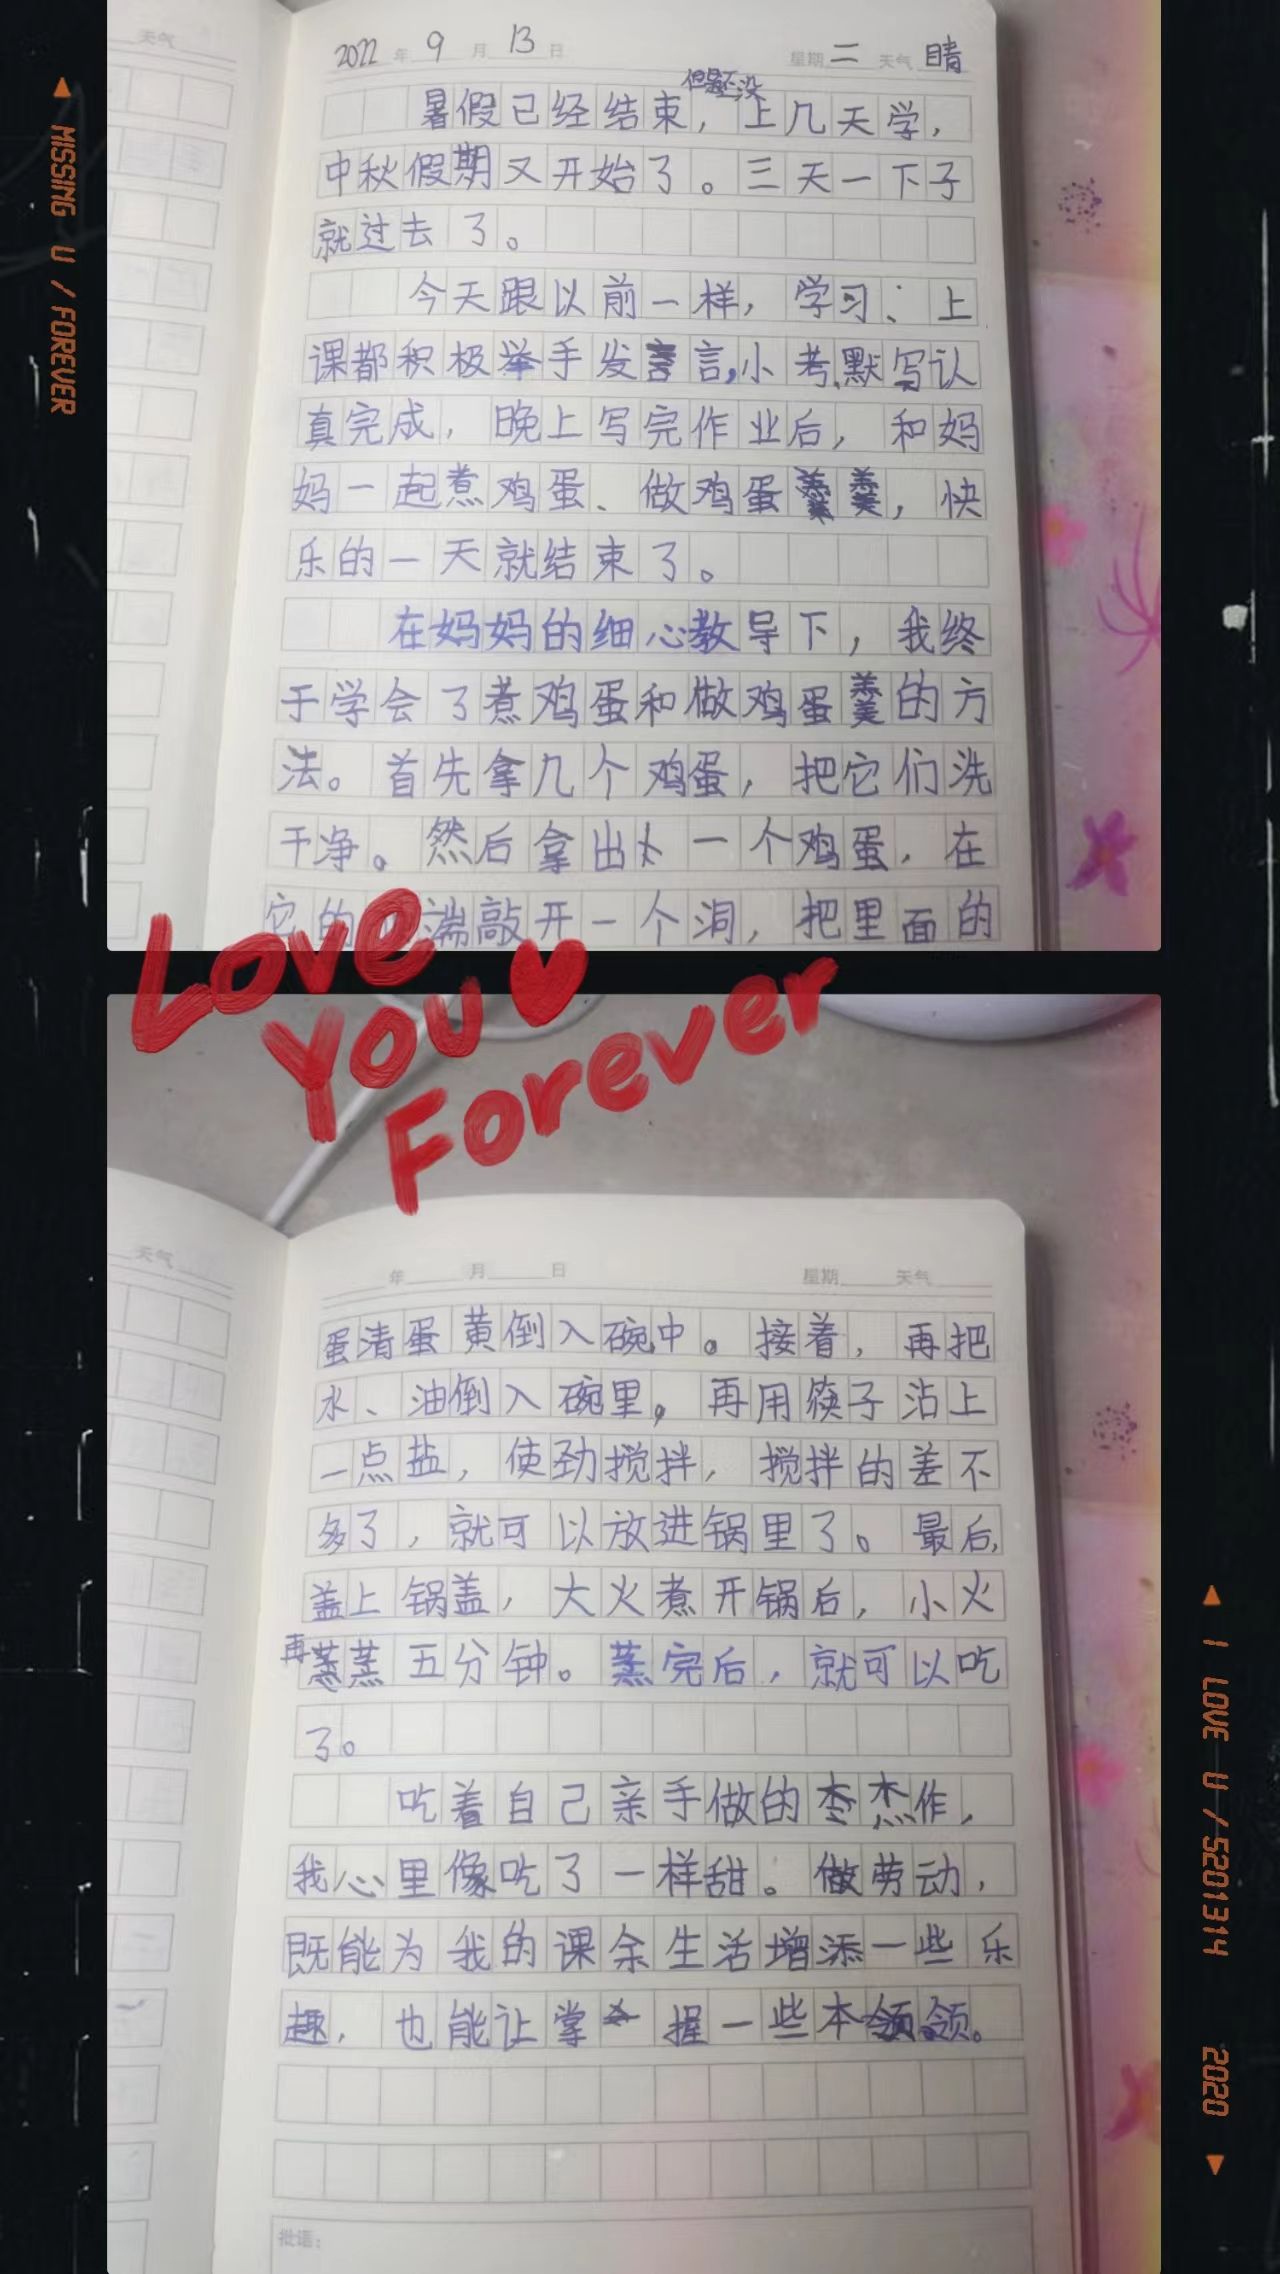 天气
2022年9月13日 星期二 天气晴
但是还没
暑假已经结束，上几天学，
中秋假期又开始了。三天一下子
就过去了。
今天跟以前一样，学习：上
课都积极举手发言，小考、默写认
真完成，晚上写完作业后，和妈
妈一起煮鸡蛋、做鸡蛋羹，快
乐的一天就结束了。
在妈妈的细心教导下，我终
于学会了煮鸡蛋和做鸡蛋羹的方
法。首先拿几个鸡蛋，把它们洗
干净。然后拿出一个鸡蛋，在
它的端敲开一个洞，把里面的
MISSING U / FOREVER
Love
You
Forever
天气
年 月 日 星期 天气
蛋清蛋黄倒入碗中。接着，再把
水、油倒入碗里，再用筷子沾上
一点盐，使劲搅拌，搅拌的差不
多了，就可以放进锅里了。最后，
盖上锅盖，大火煮开锅后，小火
再蒸五分钟。蒸完后，就可以吃
了。
吃着自己亲手做的杰作，
我心里像吃了一样甜。做劳动，
既能为我的课余生活增添一些乐
趣，也能让掌握一些本领。
批语：
I LOVE U / 5201314 2020